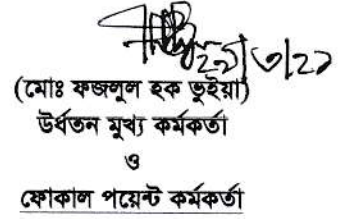 ২১/৩/২১
(মোঃ ফজলুল হক ভুইয়া)
উর্ধতন মুখ্য কর্মকর্তা
ও
ফোকাল পয়েন্ট কর্মকর্তা